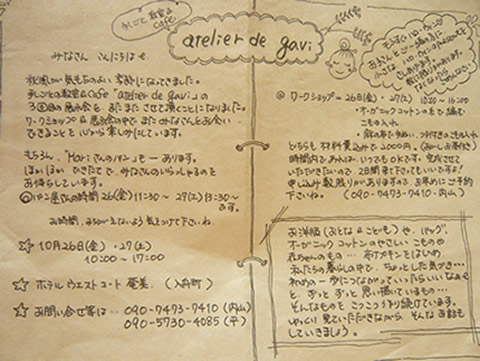 てしごと教室& cafe
atelier de gavi
みなさん こんにちはe
秋風が気もちのよい季節になってきました。
てしごと教室&Cafe "atelier de gavi"の
3回目の展示会を またまた させて頂くことになりました。
ワークショップ& 展示会の中で またみなさんとお会い
できることを 心から楽しみにしています。
もちろん、"Mariさんのパン"も… あります。
ほかほか できたてで みなさんのいらっしゃるのを
お待ちしています。
パン屋さんの時間 26(金) 11:30~ 27(土) 13:30~
です。
お時間、まちがえないよう 気をつけて下さいね。
☆ 10月26日(金)・27(土)
10:00~17:00
☆ ホテル ウエストコート 奄美 (入舟町)
☆ お問い合せ等は… 090-7473-7410 (内山)
090-5730-4085 (平)
@ ワークショップ= 26(金)・27(土) 10:20~16:00
・オーガニックコットンの糸で編む
こもの入れ
どちらも 材料費込みで 2000円。
時間内であれば、いつでもOKです。完成させて
いただきたいので、2日間来て下さってもいいですよ!
申し込み数限りがありますので お早めにご予約
下さいね。 (090-7473-7410・内山)
お洋服(おとな&こども)や、バッグ、
オーガニックコットンのやさしい こものや
赤ちゃんのもの… 布ナプキンをはじめ、
私たちの暮らしの中で、ちょっとした気づき…
わぁの一歩につながっていったらいいなぁ…
と、ずっと ずっと 思い描いているもの…
そんなものを こつこつ手作り続けています。
ゆっくり 見ていただきながら そんなお話も
していきましょう。